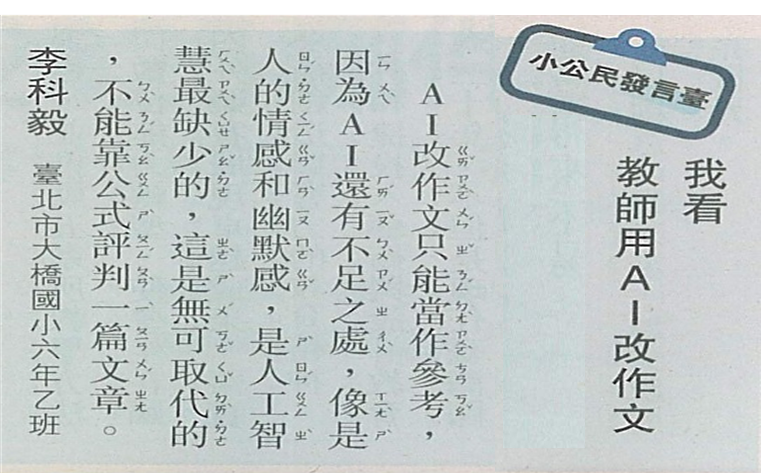 小公民發言臺
我看
教師用AI改作文
AI改作文只能當作參考,
因為AI還有不足之處,像是
人的情感和幽默感,是人工智
慧最缺少的,這是無可取代的
,不能靠公式評判一篇文章。
李科毅 臺北市大橋國小六年乙班